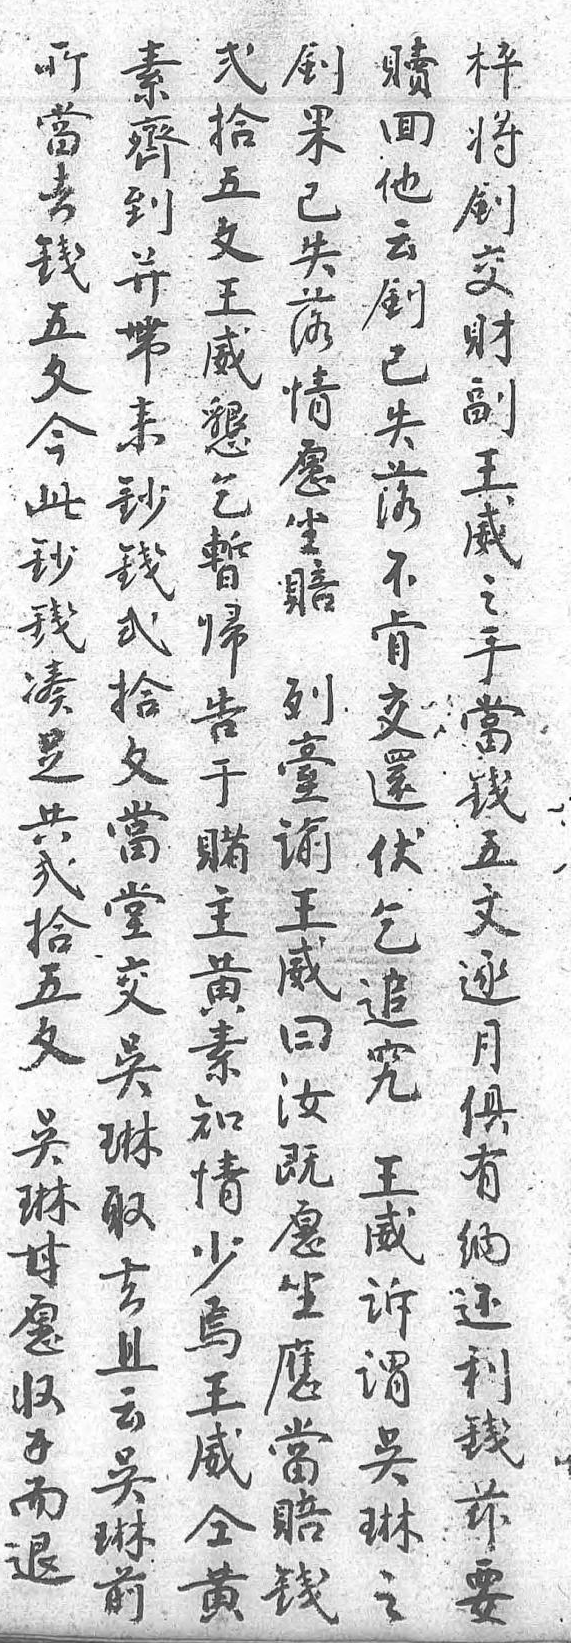 梓将釧交財副王威之手當錢五文逐月俱有納还利錢茲要
贖回他云釧已失落不肯交還伏乞追究王威訴謂吳琳之
釧果已失落情愿坐賠 列臺諭王威曰汝既愿坐應當賠錢
弍拾五文王威懇乞暫歸告于賭主黃素知情少焉王威仝黃
素齊到并帶来鈔錢弍拾文當堂交吳琳取去且云吳琳前
所當去錢五文今此鈔錢湊足共弍拾五文吳琳甘愿收手而退